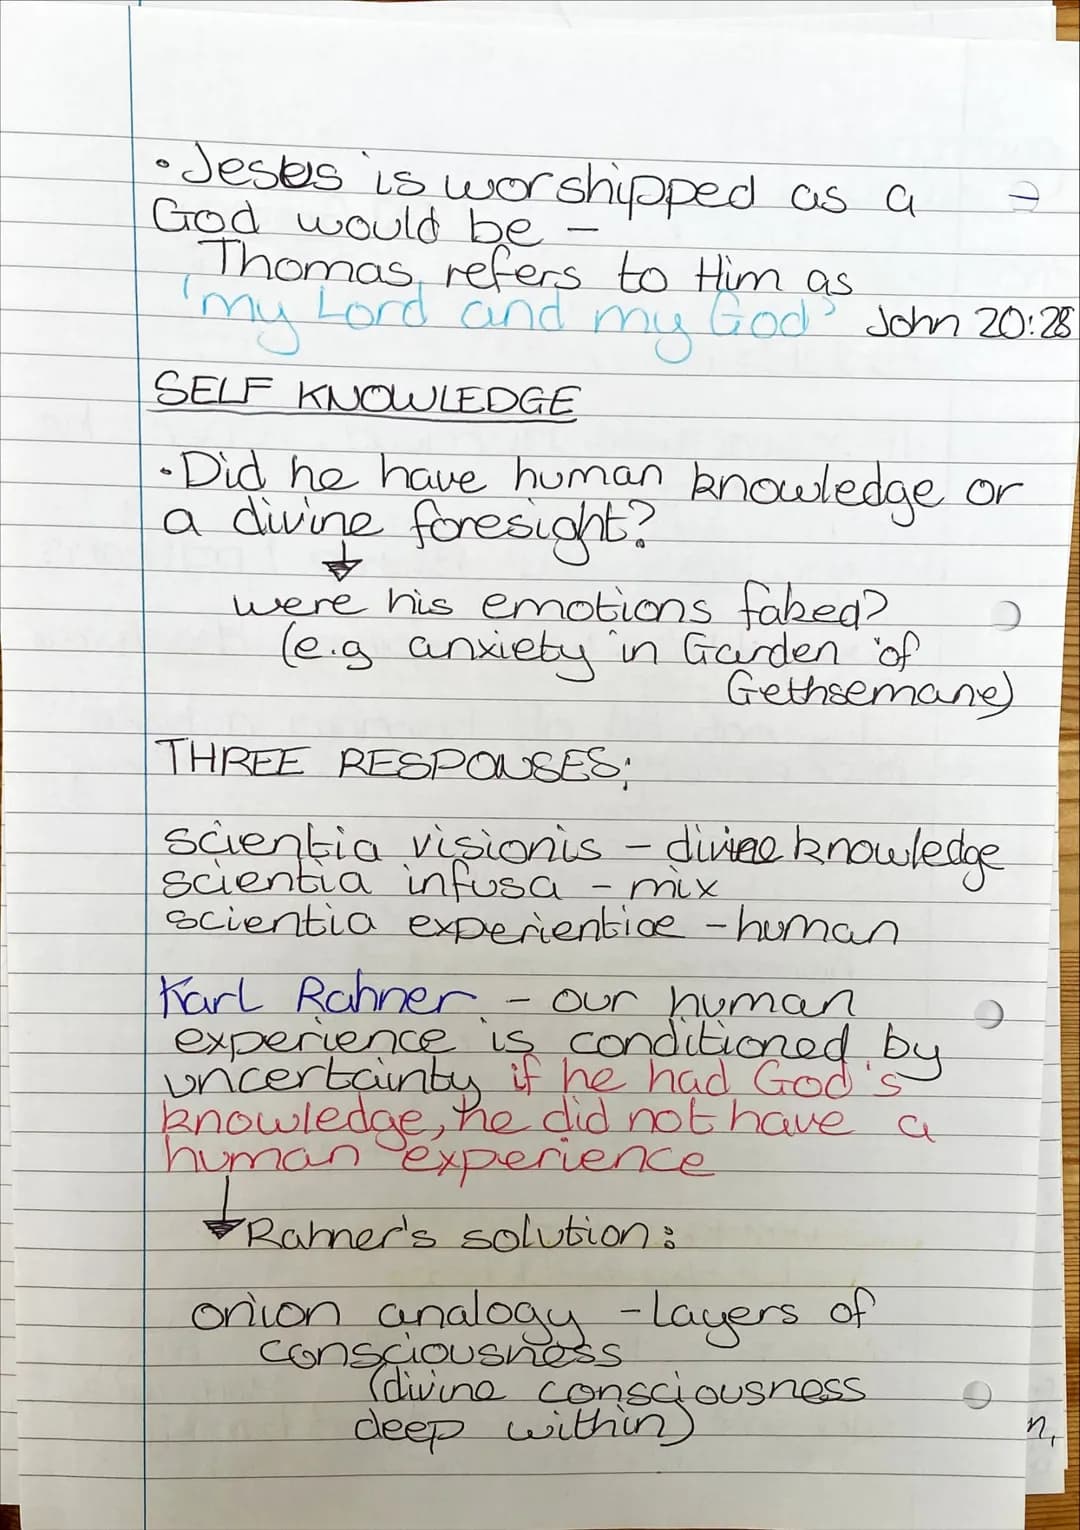 • Jesus is worshipped as a
God would be –
Thomas refers to Him as
'my Lord and my God' John 20:28
SELF KNOWLEDGE
• Did he have human knowledge or
a divine foresight?
were his emotions faked?
(e.g anxiety in Garden of
Gethsemane)
THREE RESPONSES;
scientia visionis – divine knowledge
scientia infusa – mix
scientia experientiae – human
Karl Rahner – our human
experience is conditioned by
uncertainty if he had God's
knowledge, he did not have a
human experience
Rahner's solution:
onion analogy – Layers of
consciousness
(divine consciousness
deep within)